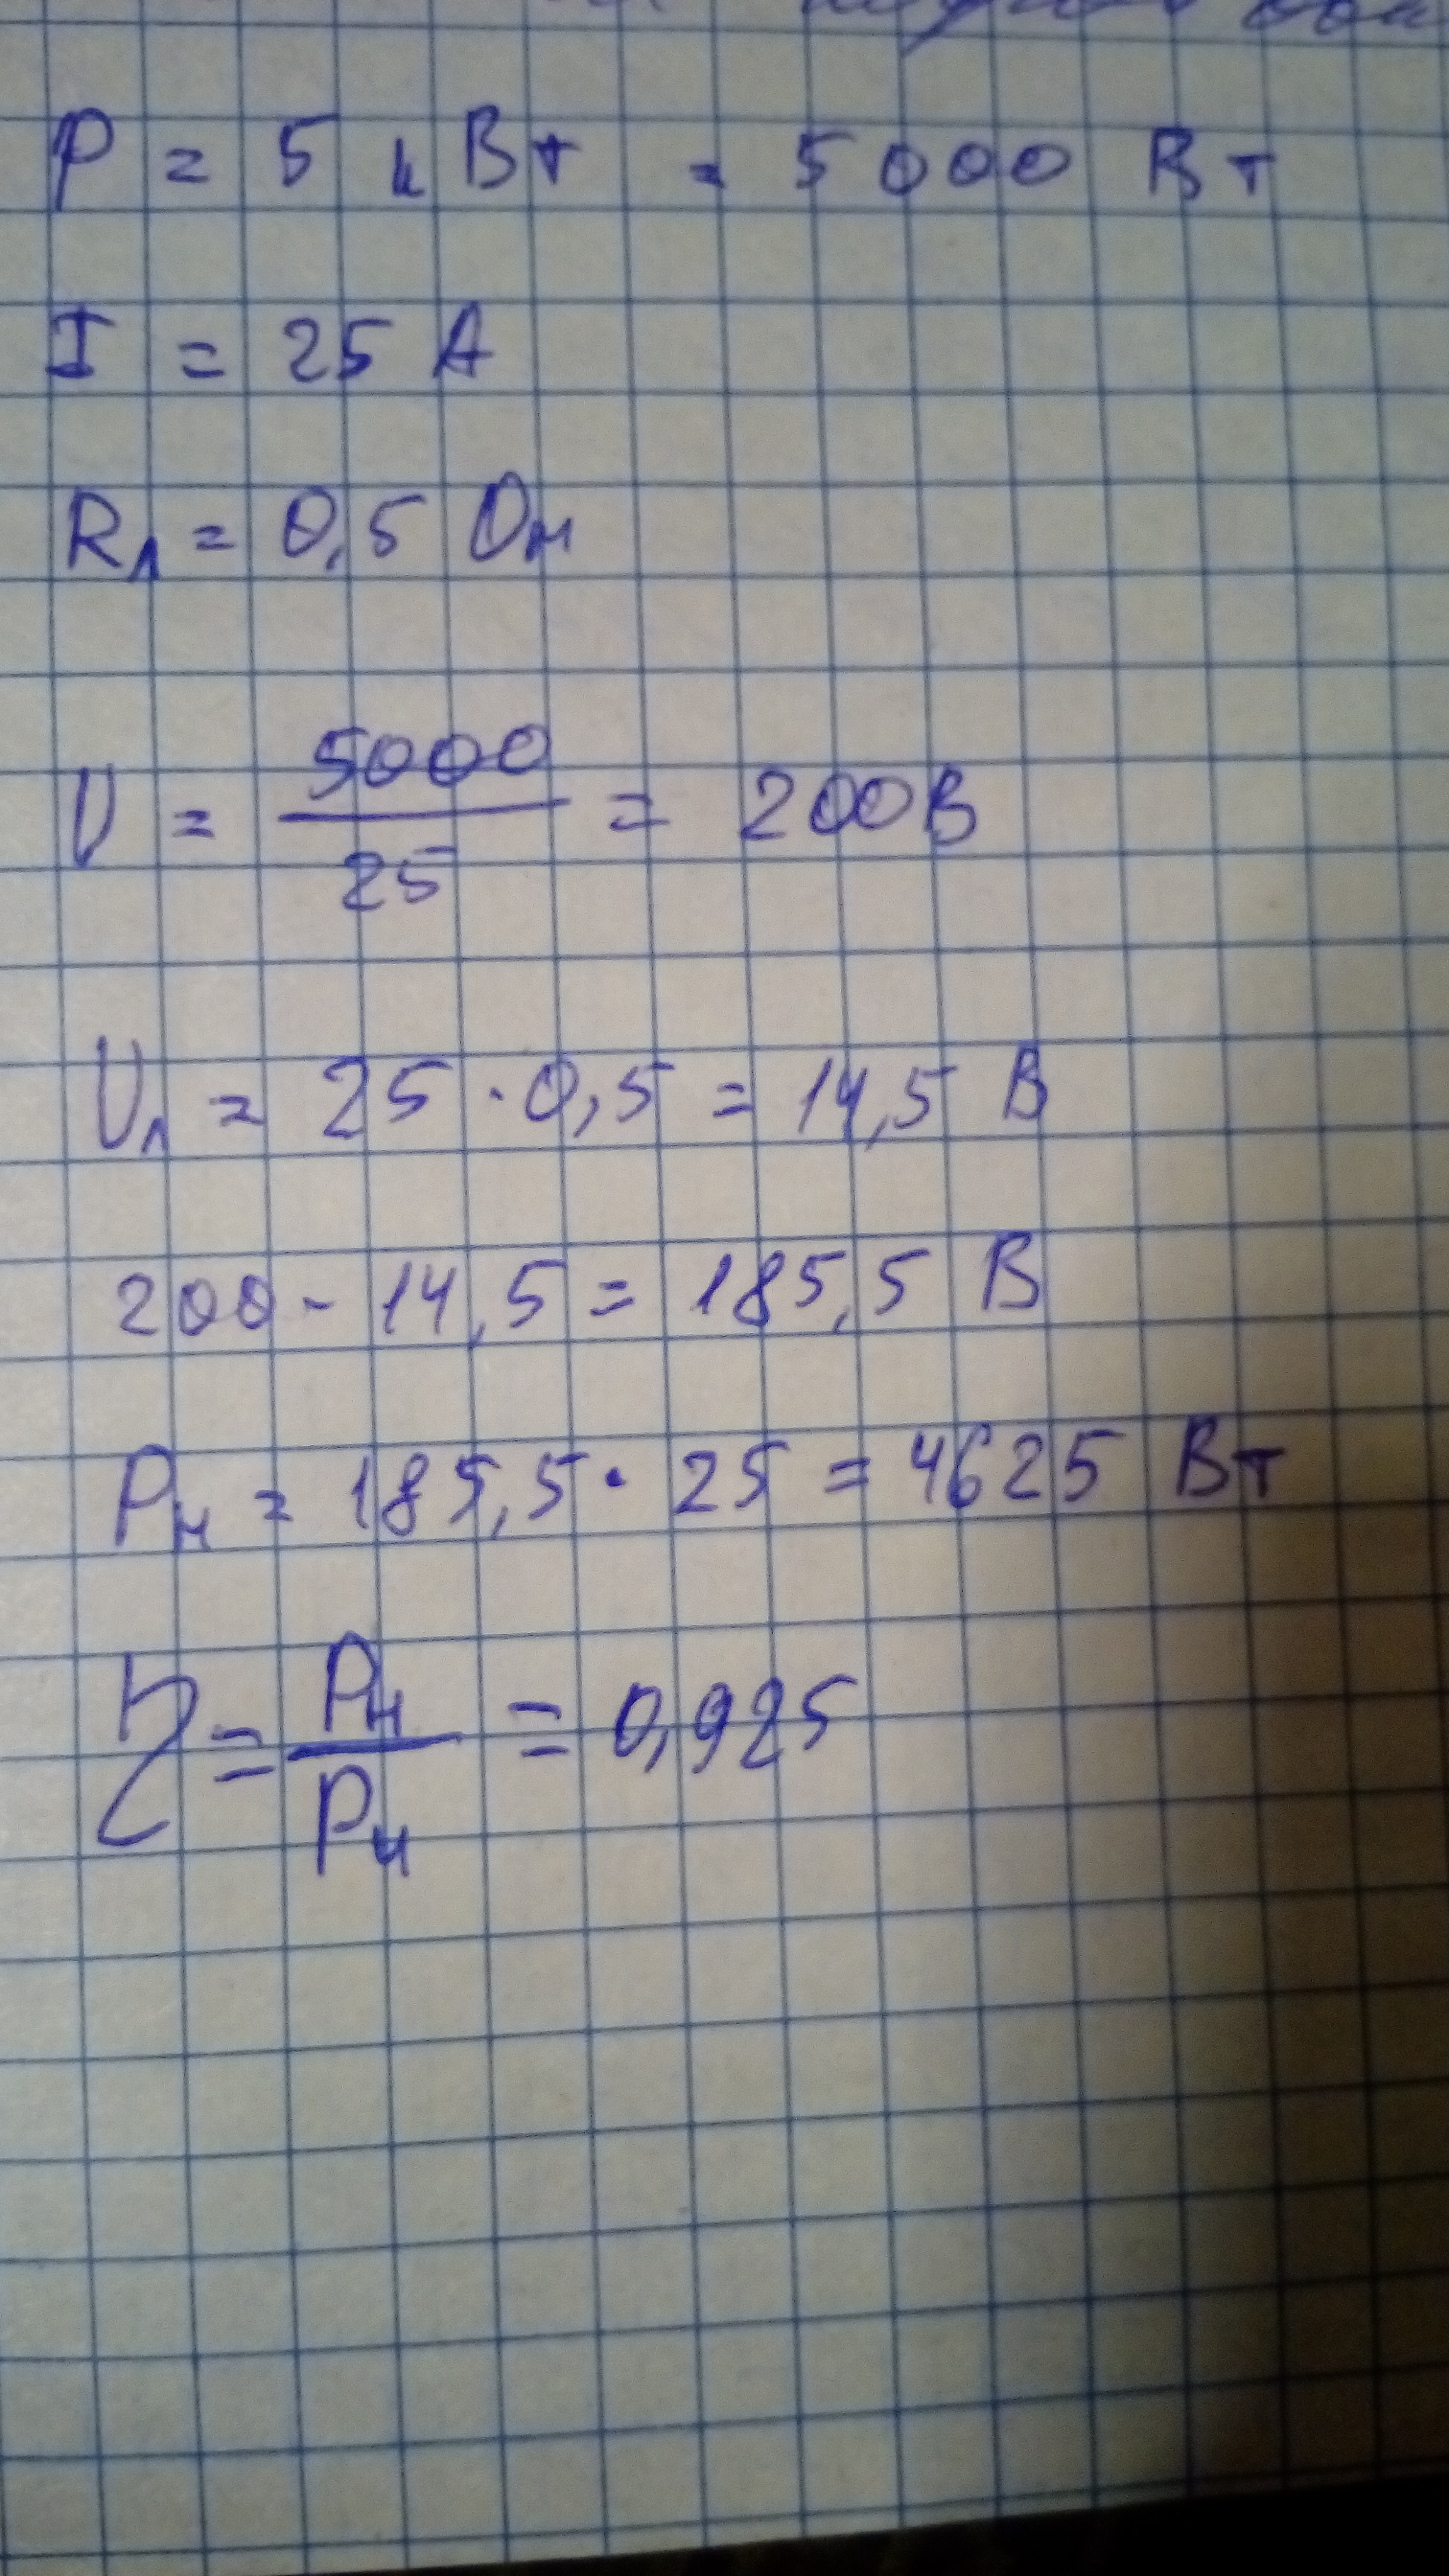 P = 5 кВт = 5000 Вт
I = 25 А
Rл = 0,5 Ом
U = 5000/25 = 200В
Uл = 25 · 0,5 = 14,5 В
200 - 14,5 = 185,5 В
Pн = 185,5 · 25 = 4625 Вт
η = Pн/Pи = 0,925